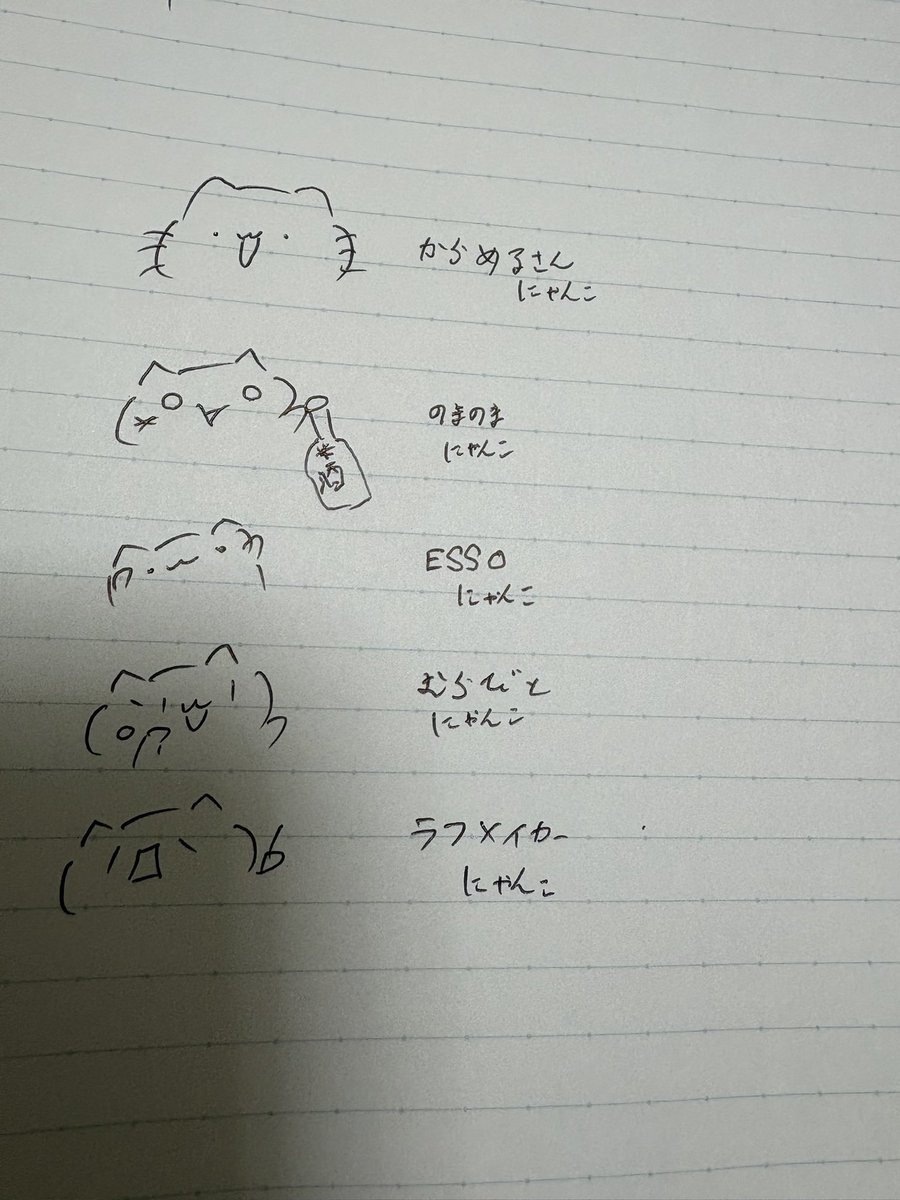 からめるさん
にゃんこ
酒
のまのま
にゃんこ
ESSO
にゃんこ
むらびと
にゃんこ
ラフメイカー
にゃんこ